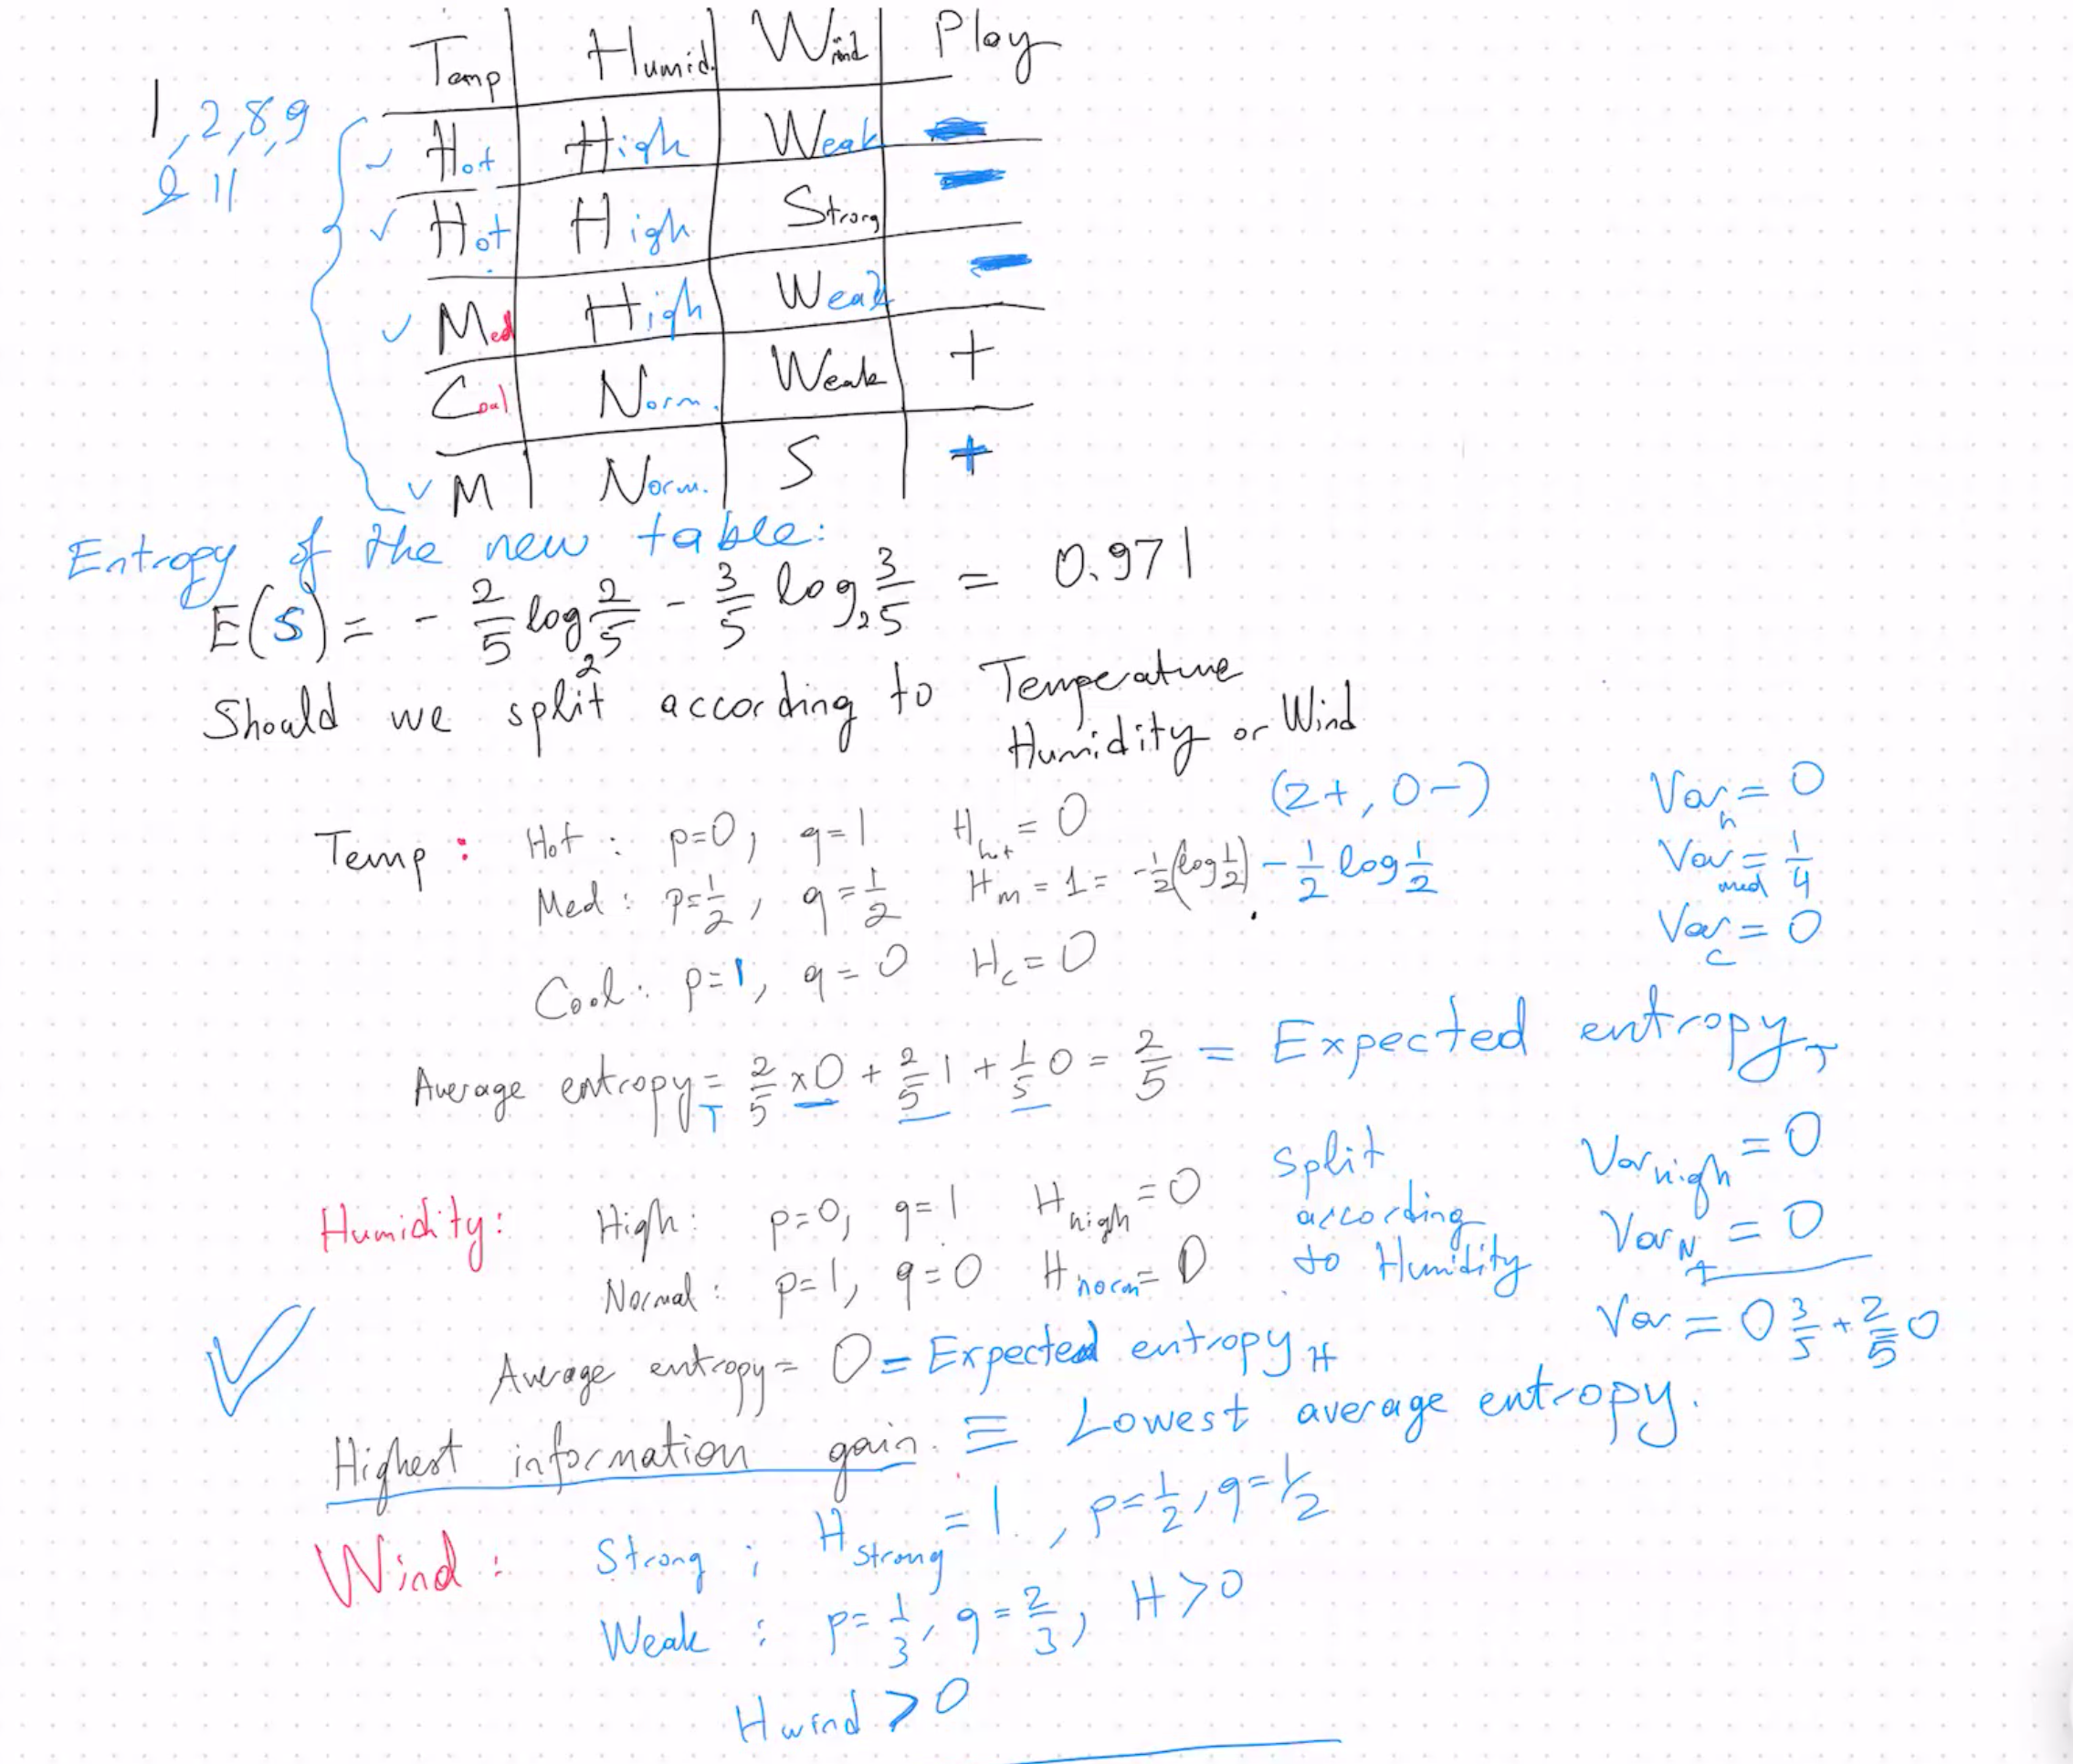 Temp Humid. Wind Play
1, 2, 8, 9
& 11
✓ Hot High Weak −
✓ Hot High Strong −
✓ Med High Weak −
Cool Norm. Weak +
✓ M Norm. S +
Entropy of the new table:
E(S) = - 2/5 log₂ 2/5 - 3/5 log₂ 3/5 = 0.971
Should we split according to Temperature
Humidity or Wind
(2+, 0−)
Temp: Hot: p=0, q=1 H_hot = 0 Var_h = 0
Med: p=1/2, q=1/2 H_m = 1 = -1/2(log 1/2) - 1/2 log 1/2 Var_med = 1/4
Cool: p=1, q=0 H_c=0 Var_c = 0
Average entropy_T = 2/5 x0 + 2/5 1 + 1/5 0 = 2/5 = Expected entropy_T
Humidity: High: p=0, q=1 H_high = 0 Var_high = 0
Normal: p=1, q=0 H_norm = 0 Var_N = 0
split
according
to Humidity
Var = 0 3/5 + 2/5 0
✓
Average entropy = 0 = Expected entropy_H
Highest information gain. ≡ Lowest average entropy.
Wind: Strong; H_strong = 1, p=1/2, q=1/2
Weak: p=1/3, q=2/3, H>0
H_wind > 0